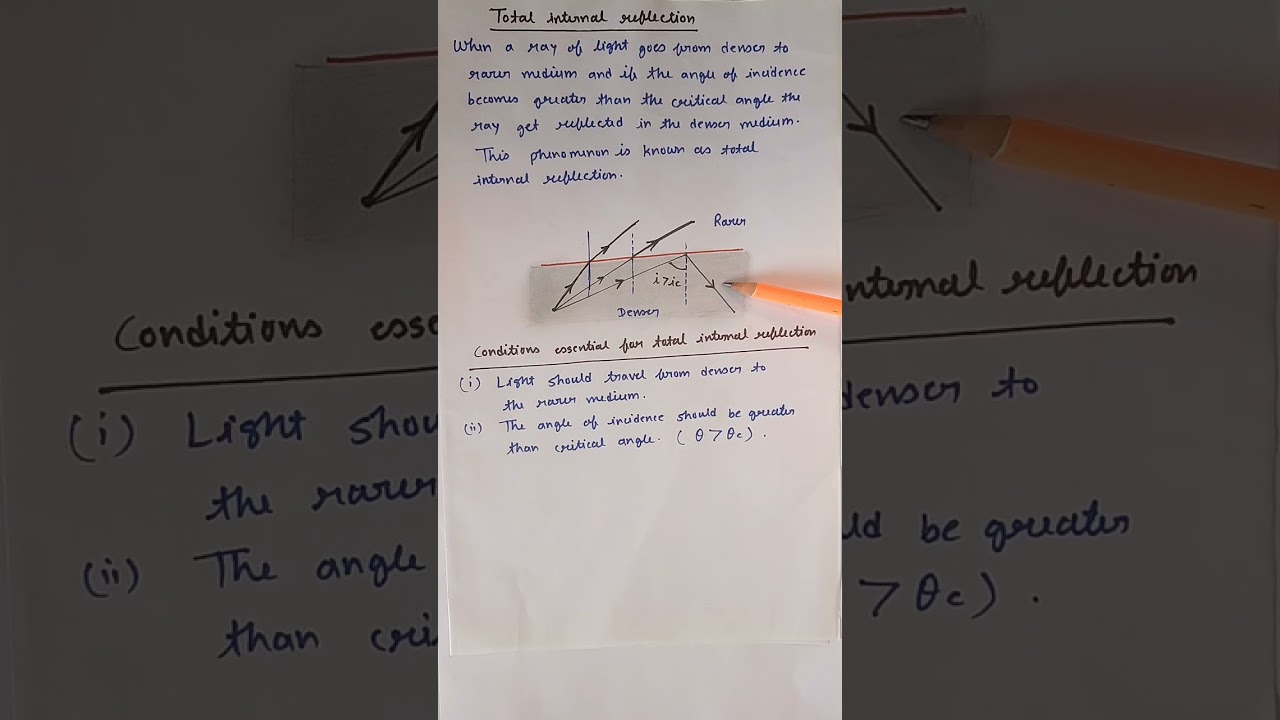 Total internal reflection
When a ray of light goes from denser to
rarer medium and if the angle of incidence
becomes greater than the critical angle the
ray get reflected in the denser medium.
This phenominon is known as total
internal reflection.
Rarer
i > ic
Denser
Conditions essential for total internal reflection
(i) Light should travel from denser to
the rarer medium.
(ii) The angle of incidence should be greater
than critical angle. ( θ > θc ) .